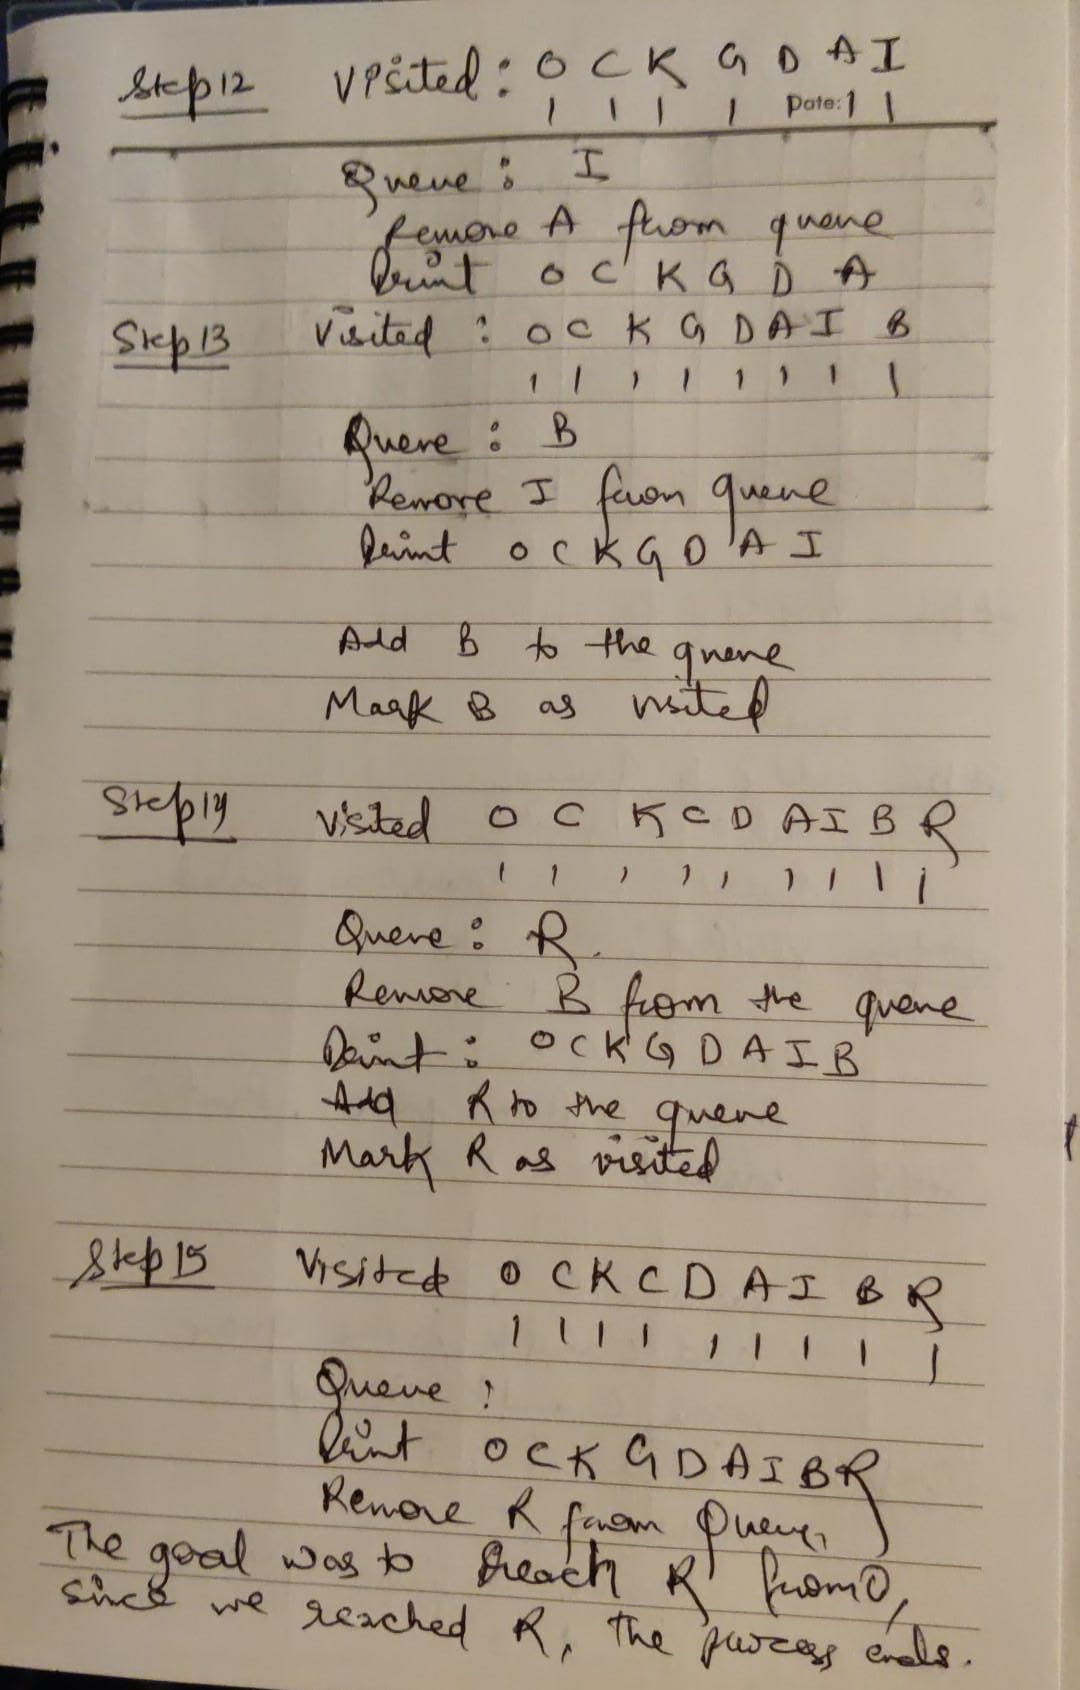 Step 12 Visited : O C K G D A I
1 1 1 1 Date: 1 1
Queue : I
Remove A from queue
Print O C K G D A
Step 13 Visited : O C K G D A I B
1 1 1 1 1 1 1 1
Queue : B
Remove I from queue
Print O C K G D A I
Add B to the queue
Mark B as visited
Step 14 Visited O C K C D A I B R
1 1 1 1 1 1 1 1 1
Queue : R.
Remove B from the queue
Print : O C K G D A I B
Add R to the queue
Mark R as visited
Step 15 Visited O C K C D A I B R
1 1 1 1 1 1 1 1 1
Queue :
Print O C K G D A I B R
Remove R from Queue,
The goal was to reach R from O,
since we reached R, the process ends.